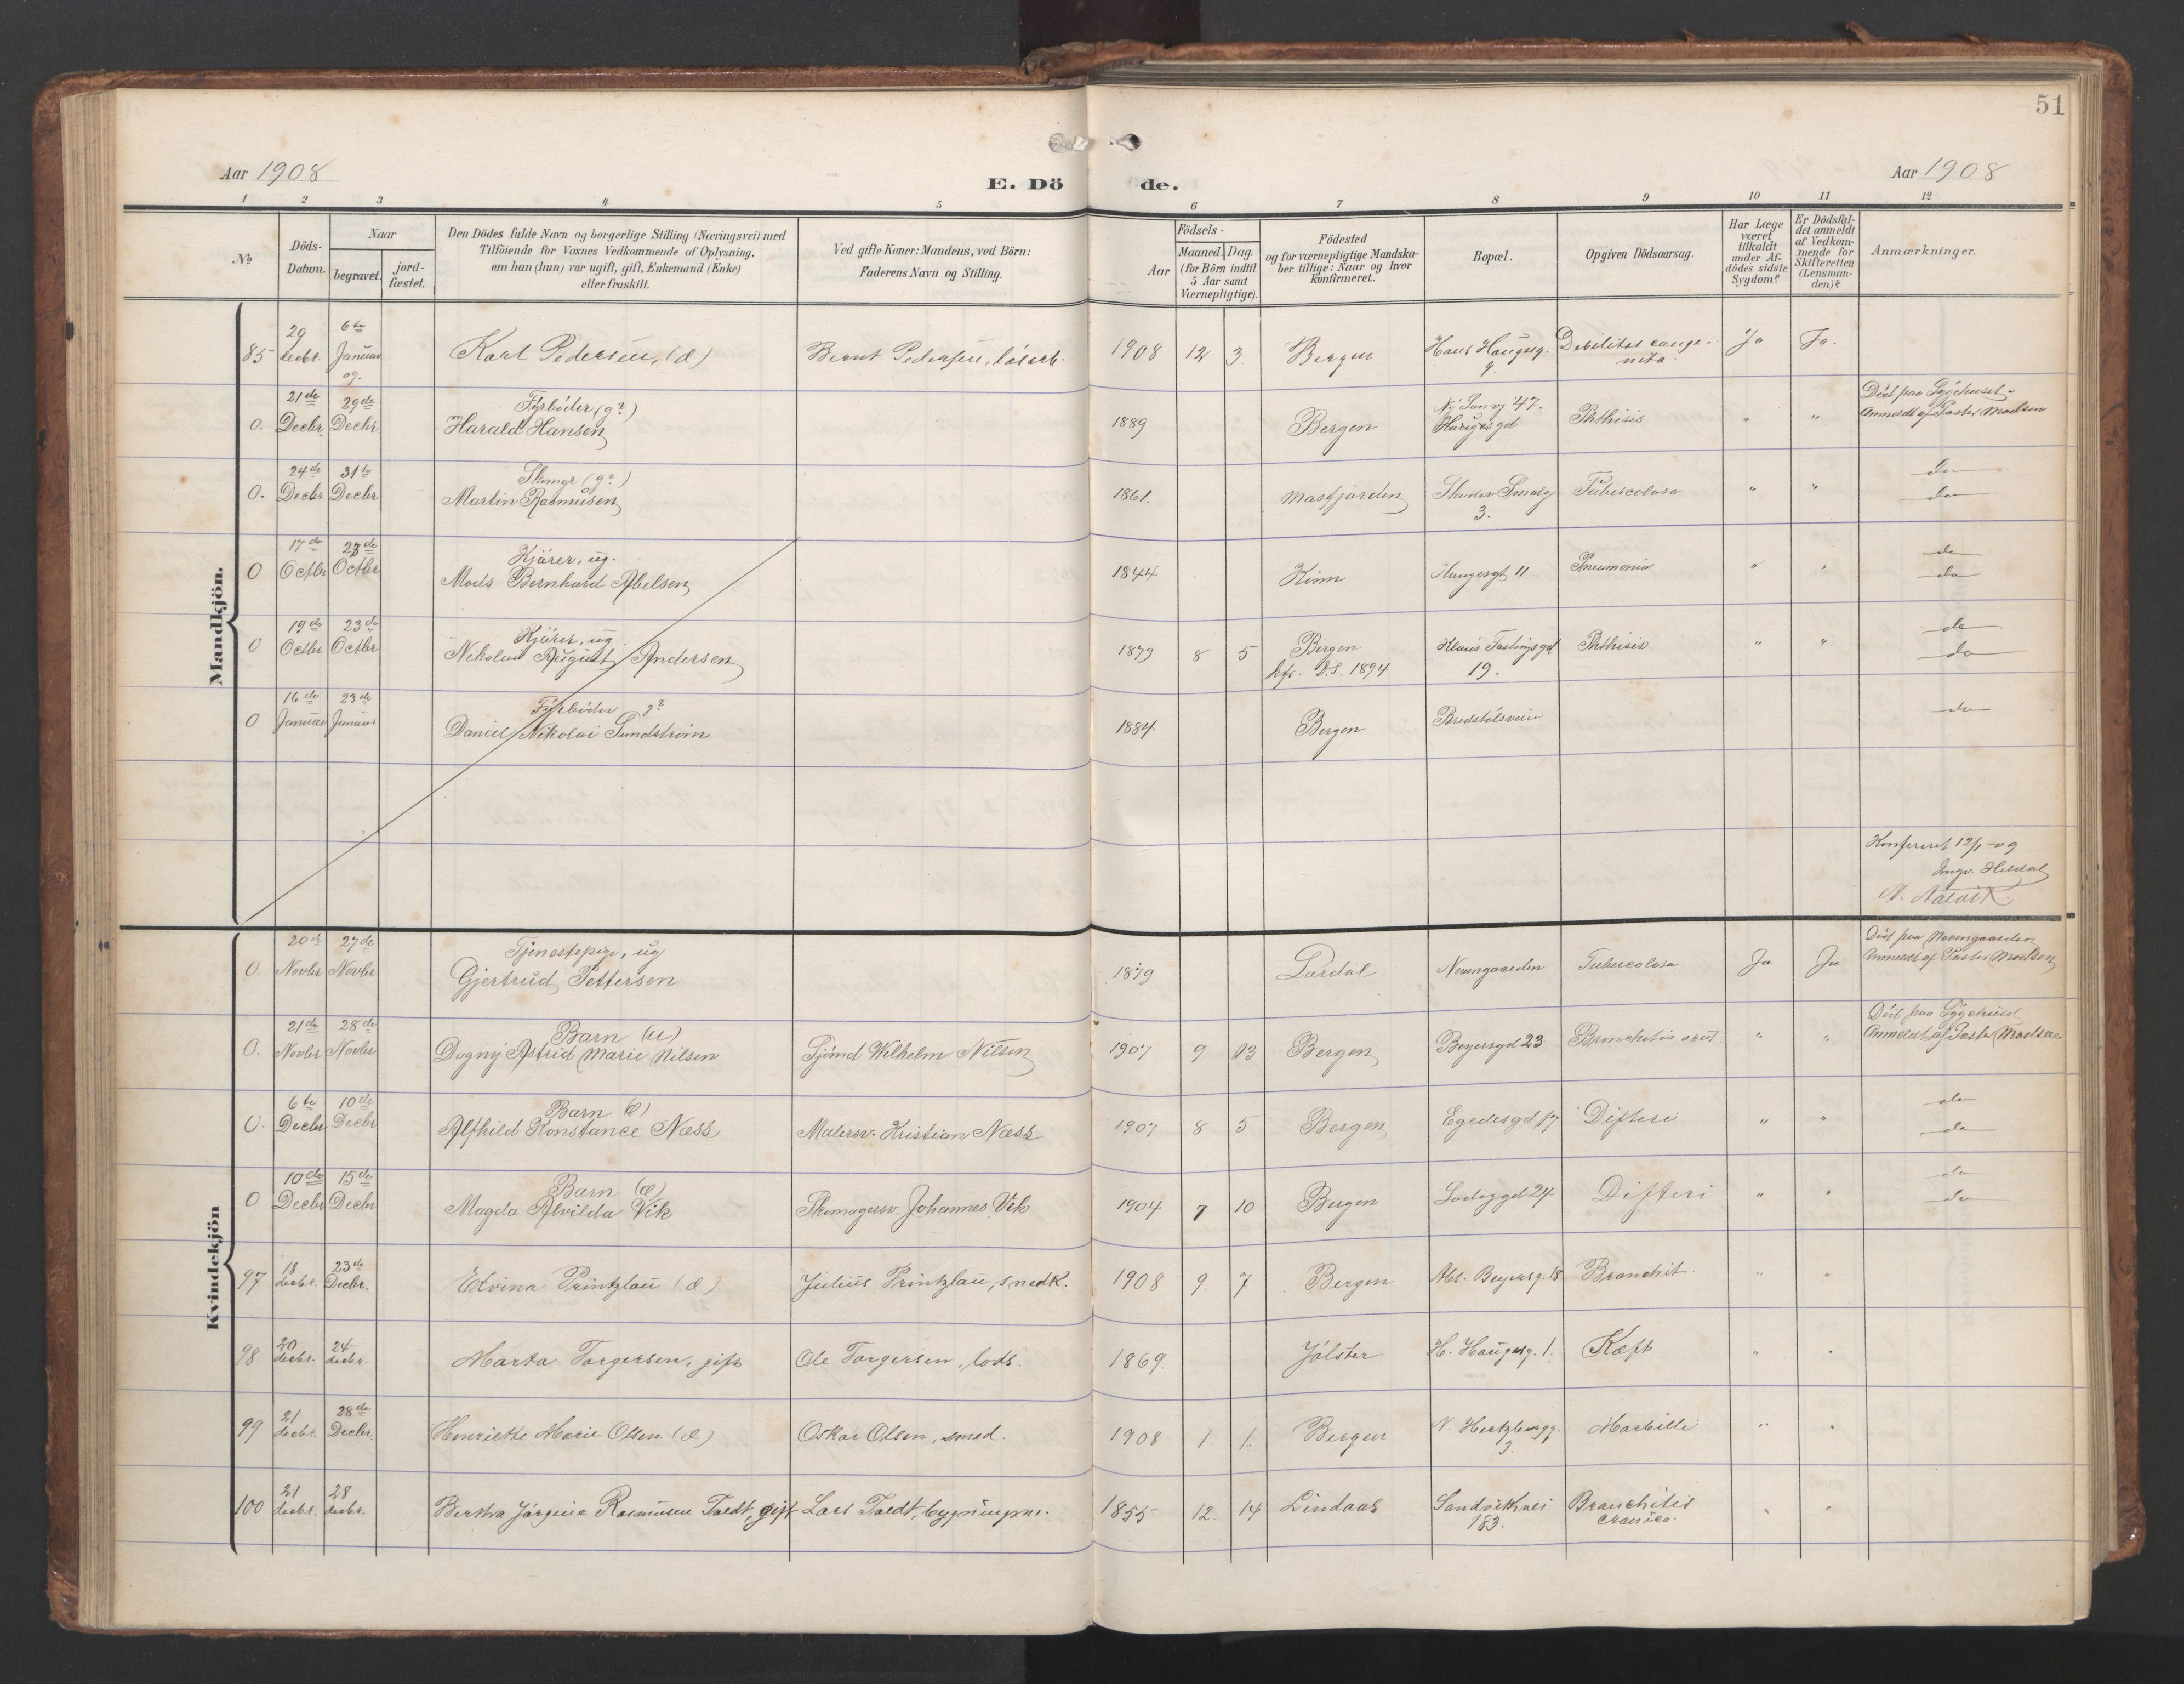 51
Aar 1908
E. Dö
de.
Aar 1908
1 2 3 4 5 6 7 8 9 10 11 12
No
Döds-Datum.
Naar
begravet.
jord-fæstet.
Den Dödes fulde Navn og borgerlige Stilling (Næringsvei) med
Tilföiende for Voxnes Vedkommende af Oplysning,
om han (hun) var ugift, gift, Enkemand (Enke)
eller fraskilt.
Ved gifte Koner: Mandens, ved Börn:
Faderens Navn og Stilling.
Födsels-
Aar
Maaned. Dag.
(for Börn indtil
5 Aar samt
Værnepligtige).
Födested
og for værnepligtige Mandska-
ber tillige: Naar og hvor
konfirmeret.
Bopæl.
Opgiven Dödsaarsag.
Har Læge
været
tilkaldt
under Af-
dödes sidste
Sygdom?
Er Dödsfal-
det anmeldt
af Vedkom-
mende for
Skifteretten
(Lensman-
den)?
Anmærkninger.
Mandkjön.
85 29 decbr. 6te Januar 09. Karl Pedersen, (æ) Bernt Pedersen, løsarb. 1908 12 3 Bergen Hans Haugesg. 9. Debilitas congenita. Ja Ja.
0. 21de Decbr. 29de Decbr Fyrbøder (g?) Harald Hansen 1889 Bergen 47. Haugesgd Phthisis " " Død paa Sygehuset. Anmeldt af Pastor Madsen
0. 24de Decbr 31te Decbr Skomgr (g?) Martin Rasmusen 1861. Masfjorden 3. Tubercolose " " do do
0 17de Octbr 23de Octbr Kjører, ug. Mads Bernhard Abelsen 1844 Kinn Haugesgt 11 Pneumonia " " do do
0 19de Octbr 23de Octbr Kjører, ug Nikolai August Andersen 1879 8 5 Bergen kfr. D.S. 1894 Klaus Fastingsgd 19. Phthisis " " do do
0 16de Januar 23de Januar Fyrbøder g? Daniel Nikolai Sundstrøm 1884 Bergen Bredstølsveien do
Konfereret 12/1-09
Ingv. Hildal
N. Aalvik.
Kvindekjön
0. 20de Novbr 27de Novbr Tjenestepige, ug Gjertrud Pettersen 1879 Lærdal Nevengaarden Tubercolosa Ja Ja Død paa Nevengaarden Anmeldt af Pastor Madsen
0. 21de Novbr 28de Novbr Barn (u) Dagny Astrid Marie Nilsen Wilhelm Nilsen 1907 9 13 Bergen Beyersgd 23 Bronchitis acut " " Død paa Sygehuset Anmeldt af Pastor Madsen
0. 6te Decbr 10de Decbr Barn (æ) Alfhild Konstance Næss Malersv. Kristian Næss 1907 8 5 Bergen Egedesgd 17 Difteri " " do do
0 10de Decbr 15de Decbr Barn (æ) Magda Alvilda Vik Skomagersv. Johannes Vik 1904 7 10 Bergen Ladegd 24 Difteri " " do do
97 18 decbr. 23de Decbr. Edvina Printzlau (æ) Julius Printzlau, snedk. 1908 9. 7 Bergen Abs. Beyersg. 18 Bronchit. " "
98 20 decbr. 24 decbr. Marta Torgersen, gift Ole Torgersen, lods. 1869. Jølster H. Haugesg. 1. Kræft " "
99 21 decbr. 28de Decbr. Henriette Marie Olsen (æ) Oskar Olsen, smed. 1908 1. 1. Bergen N. Hertzbergg. 3. Morbilli " "
100 21 decbr. 28 decbr. Bertha Jørgine Rasmusen Toldt, gift Lars Toldt, bygningssn. 1855 12. 14 Lindaas Sandviksvei 183. Bronchitis cronica. " "